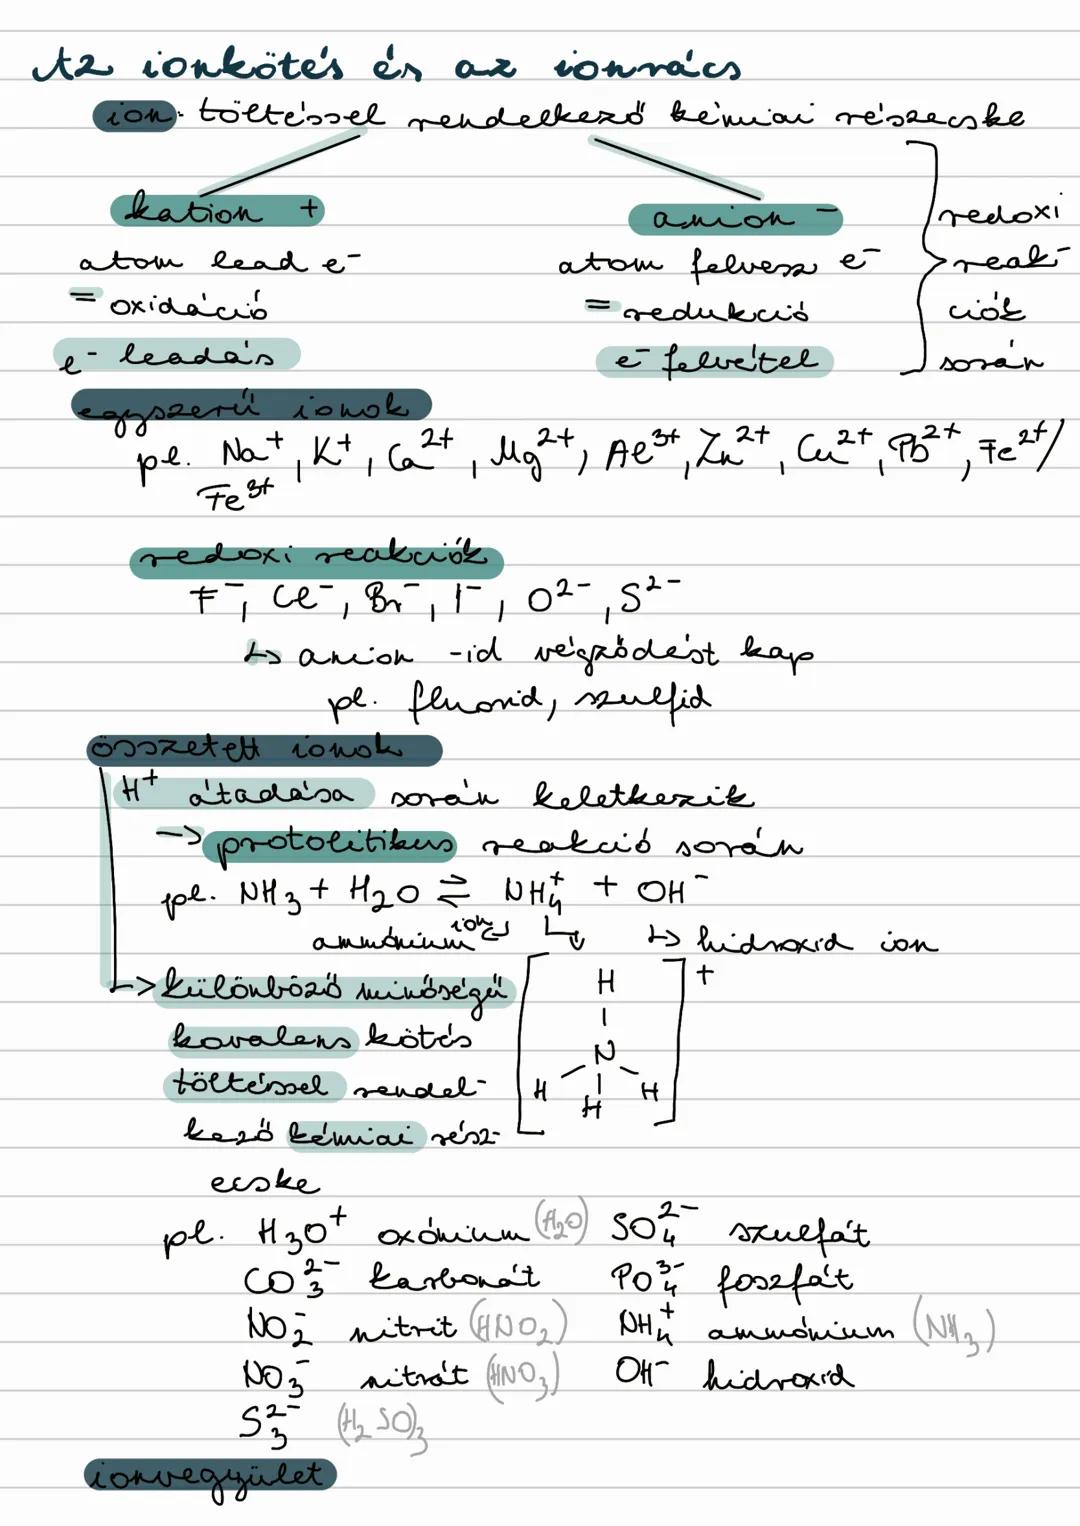 Az ionkötés és az ionrács
ion: töltéssel rendelkező kémiai részecske
kation +
anion -
atom lead e-
atom felvesz e-
= oxidáció
= redukció
e- leadás
e- felvétel
redoxi
reak-
ciók
során
egyszerű ionok
pl. Na⁺, K⁺, Ca²⁺, Mg²⁺, Al³⁺, Zn²⁺, Cu²⁺, Pb²⁺, Fe²⁺/
Fe³⁺
redoxi reakciók
F⁻, Cl⁻, Br⁻, I⁻, O²⁻, S²⁻
↳ anion -id végződést kap
pl. fluorid, szulfid
összetett ionok
H⁺ átadása során keletkezik
-> protolitikus reakció során
pl. NH₃ + H₂O ⇌ NH₄⁺ + OH⁻
ammónium ion ↳ hidroxid ion
-> különböző minőségű
kovalens kötés
töltéssel rendel-
kező kémiai rész-
ecske
[ H +
N
H H H ]
pl. H₃O⁺ oxónium (H₂O) SO₄²⁻ szulfát
CO₃²⁻ karbonát PO₄³⁻ foszfát
NO₂⁻ nitrit (HNO₂) NH₄⁺ ammónium (NH₃)
NO₃⁻ nitrát (HNO₃) OH⁻ hidroxid
S₃²⁻ (H₂SO)₃
ionvegyület